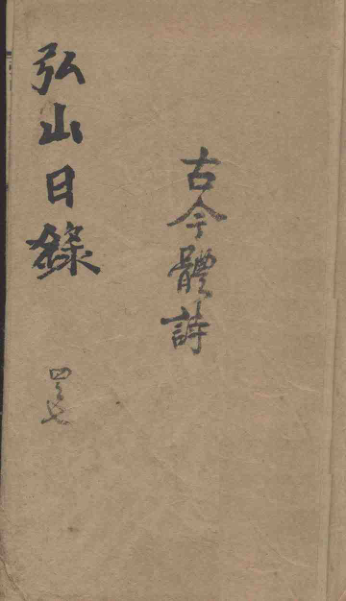 古今體詩
弘山日錄
四之七